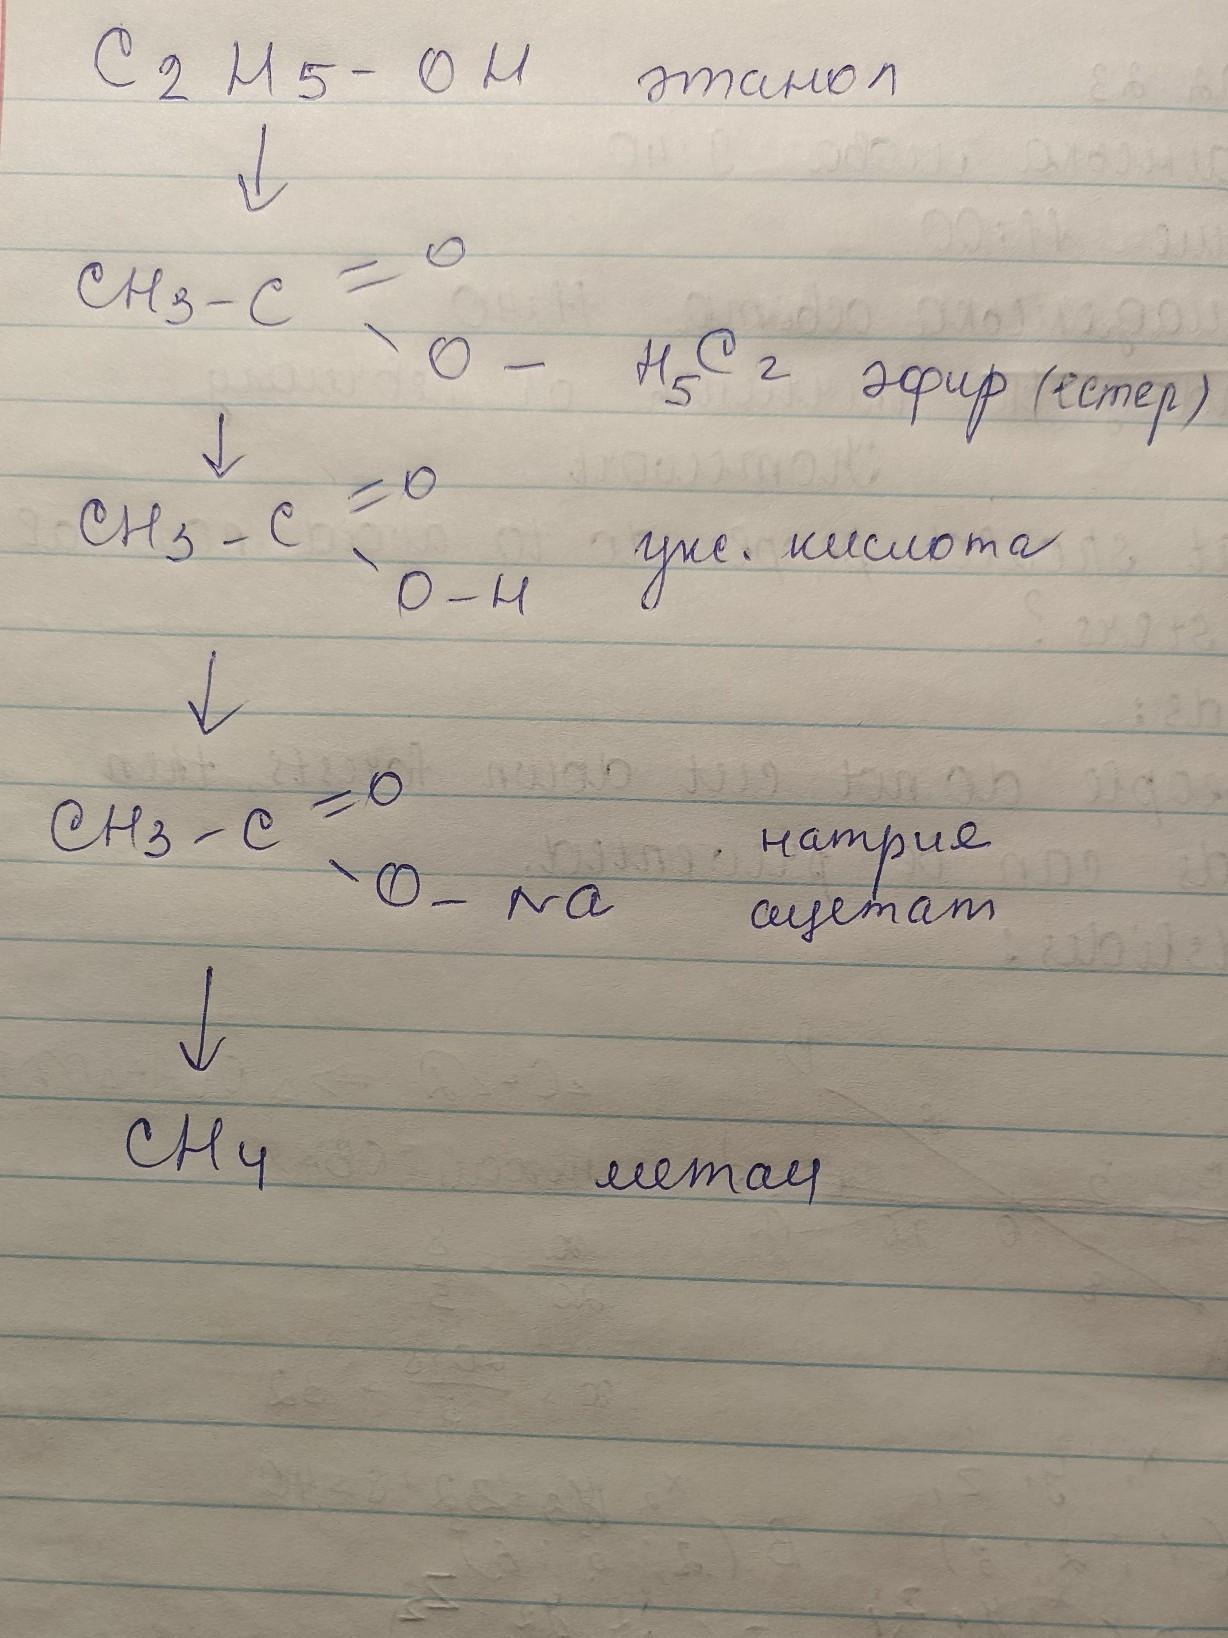 C2H5-OH этанол
CH3-C=O
\O-H5C2 эфир (естер)
CH3-C=O
\O-H укс. кислота
CH3-C=O
\O-Na натрия ацетат
CH4 метан